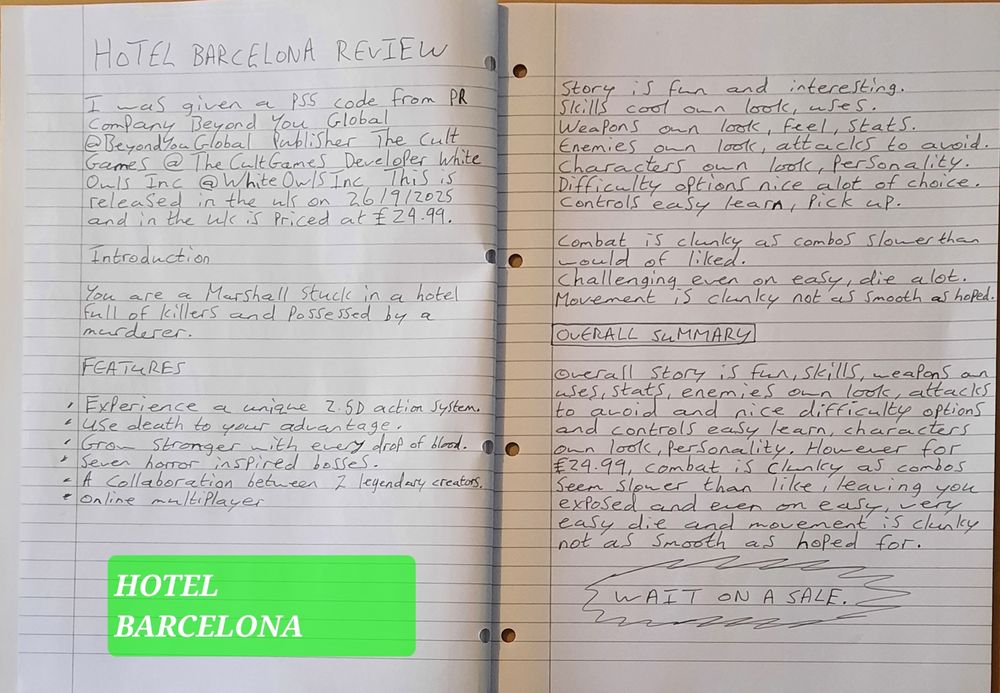 HOTEL BARCELONA REVIEW
I was given a PS5 code from PR
Company Beyond You Global
@BeyondYouGlobal Publisher The Cult
Games @TheCultGames Developer White
Owls Inc @WhiteOwlsInc This is
released in the uk on 26/9/2025
and in the uk is Priced at £24.99.
Introduction
You are a Marshall Stuck in a hotel
full of killers and Possessed by a
murderer.
FEATURES
Experience a unique 2.5D action system.
Use death to your advantage.
Grow Stronger with every drop of blood.
Seven horror inspired bosses.
A collaboration between 2 legendary creators.
online multiplayer
HOTEL
BARCELONA
Story is fun and interesting.
Skills cool own look, uses.
Weapons own look, feel, stats.
Enemies own look, attacks to avoid.
Characters own look, Personality.
Difficulty options nice alot of choice.
Controls easy learn, Pick up.
Combat is clunky as combos slower than
would of liked.
Challenging even on easy, die alot.
Movement is clunky not as smooth as hoped.
OVERALL SUMMARY
Overall Story is fun, skills, weapons own
uses, stats, enemies own look, attacks
to avoid and nice difficulty options
and controls easy learn, characters
own look, Personality. However for
£24.99, combat is clunky as combos
seem slower than like, leaving you
exposed and even on easy, very
easy die and movement is clunky
not as smooth as hoped for.
WAIT ON A SALE.